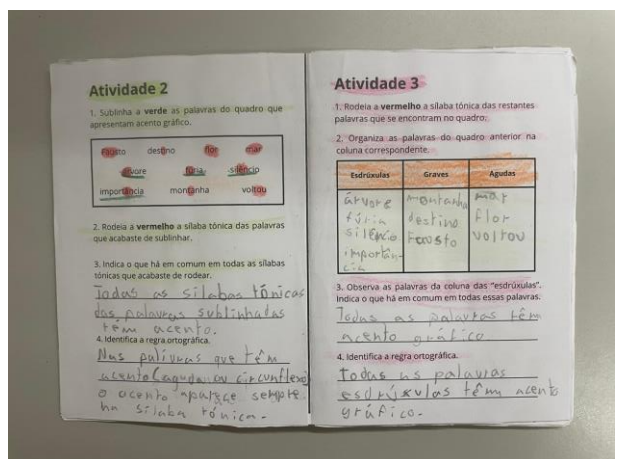 Atividade 2
1. Sublinha a verde as palavras do quadro que
apresentam acento gráfico.
Fausto destino flor mar
árvore fúria silêncio
importância montanha voltou
2. Rodeia a vermelho a sílaba tónica das palavras
que acabaste de sublinhar.
3. Indica o que há em comum em todas as sílabas
tónicas que acabaste de rodear.
Todas as sílabas tónicas
das palavras sublinhadas
têm acento.
4. Identifica a regra ortográfica.
Nas palavras que têm
acento (agudo ou circunflexo)
o acento aparece sempre
na sílaba tónica.
Atividade 3
1. Rodeia a vermelho a sílaba tónica das restantes
palavras que se encontram no quadro.
2. Organiza as palavras do quadro anterior na
coluna correspondente.
Esdrúxulas Graves Agudas
árvore montanha mar
fúria destino flor
silêncio Fausto voltou
importân-
cia
3. Observa as palavras da coluna das "esdrúxulas".
Indica o que há em comum em todas essas palavras.
Todas as palavras têm
acento gráfico
4. Identifica a regra ortográfica.
Todas as palavras
esdrúxulas têm acento
gráfico.